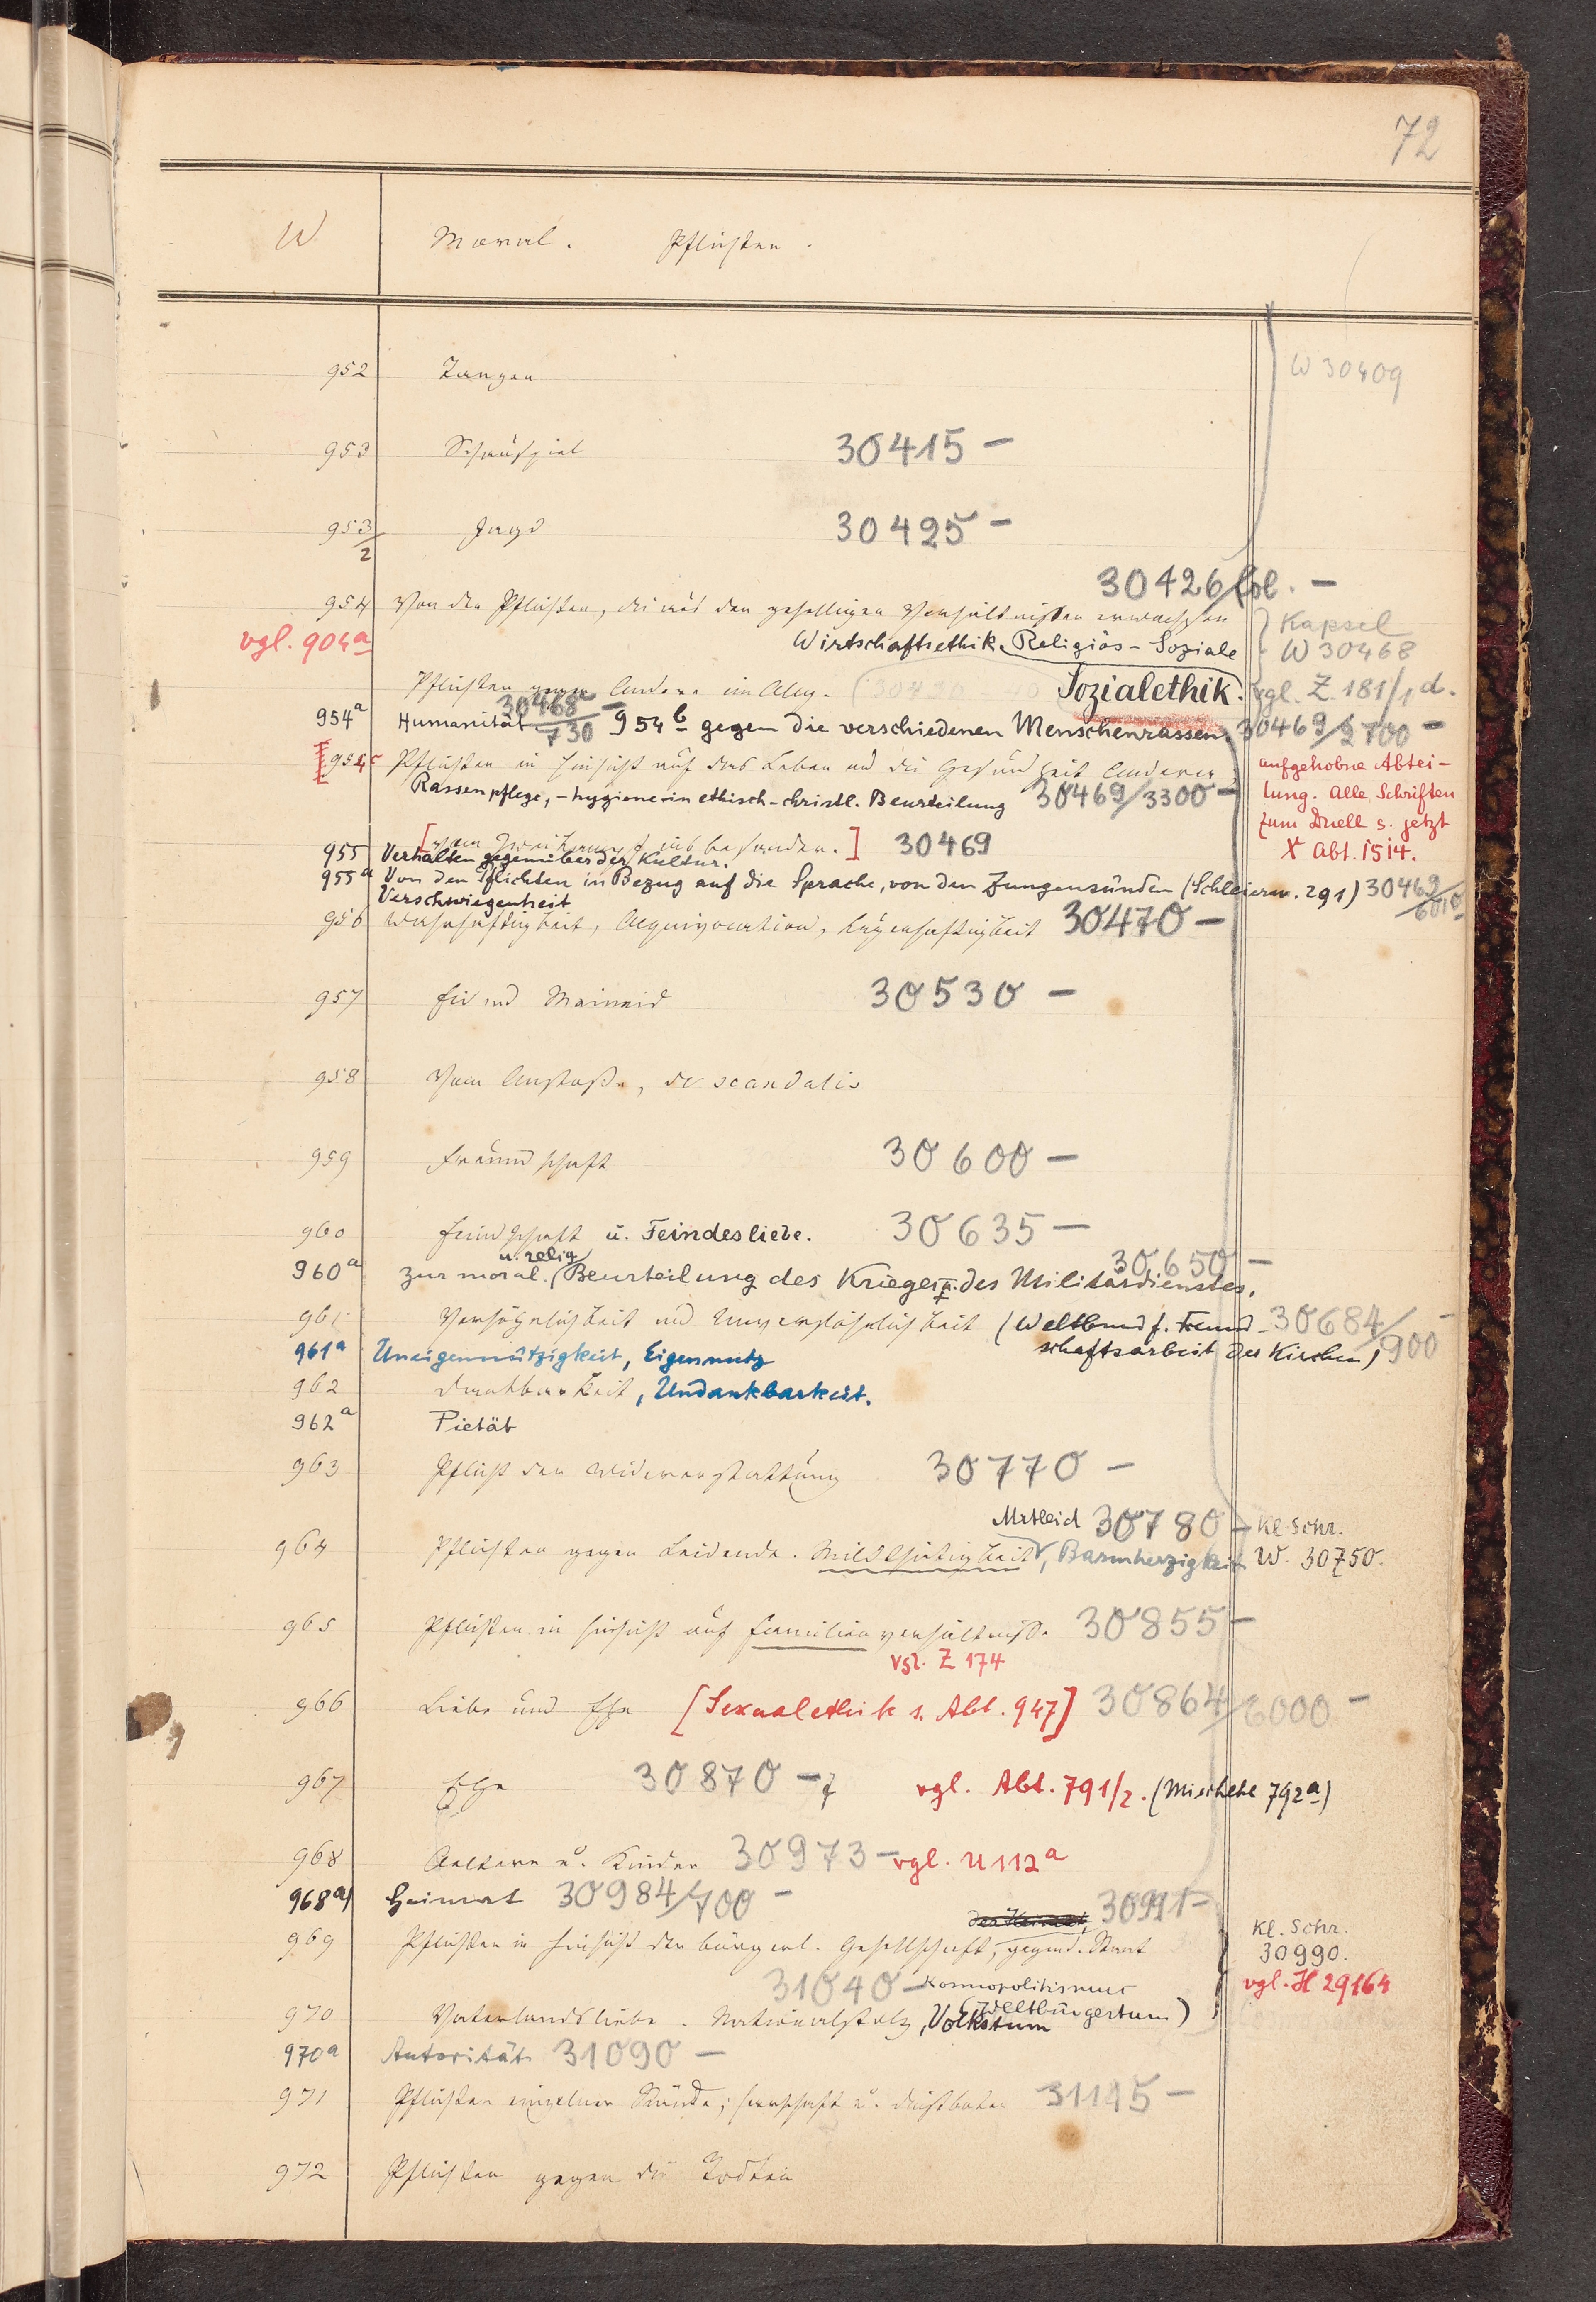 72
W Moral. Pflichten.
952 Tanzen W 30409
953 Schauspiel 30415 –
953/2 Jagd 30425 –
30426 fol. –
954 Von den Pflichten, die aus den geselligen Verhältnissen erwachsen } Kapsel
vgl. 904a Wirtschaftsethik. Religiös-Soziale } W 30468
Pflichten gegen Andere im Allg. (30430 Sozialethik. vgl. Z. 181/1 d.
954a Humanität 30468/730 – 954b gegen die verschiedenen Menschenrassen. 30469/2700 –
[954c Pflichten in Hinsicht auf das Leben und die Gesundheit Anderer, aufgehobne Abtei-
Rassenpflege, -hygiene in ethisch-christl. Beurteilung 30469/3300 – lung. Alle Schriften
zum Duell s. jetzt
[vom Zweikampf insbesondere.] 30469 X Abt. 1514.
955 Verhalten gegenüber der Kultur.
955a Von den Pflichten in Bezug auf die Sprache, von den Zungensünden (Schleierm. 291) 30469/6010
Verschwiegenheit
956 Wahrhaftigkeit, Aequivocation, Lügenhaftigkeit 30470 –
957 Eid und Meineid 30530 –
958 Vom Anstoße, de scandalis
959 Freundschaft 30600 –
960 Feindschaft u. Feindesliebe. 30635 –
u. relig. 30650 –
960a zur moral. Beurteilung des Krieges u. des Militärdienstes.
961 Versöhnlichkeit und Unversöhnlichkeit (Weltbund f. Freund- 30684/900 –
961a Uneigennützigkeit, Eigennutz schaftsarbeit der Kirchen)
962 Dankbarkeit, Undankbarkeit.
962a Pietät
963 Pflicht der Widererstattung 30770 –
Mitleid 30780 – Kl. Schr.
964 Pflichten gegen Leidende. Mildthätigkeit, Barmherzigkeit W. 30750.
965 Pflichten in Hinsicht auf Familienverhältnisse 30855 –
vgl. Z 174
966 Liebe und Ehe [Sexualethik s. Abt. 947] 30864/6000 –
967 Ehe 30870 – vgl. Abt. 791/2. (Mischehe 792a)
968 Aeltern u. Kinder 30973 – vgl. U 112a
968a) Heimat 30984/700 –
der Heimat, 30991 – Kl. Schr.
969 Pflichten in Hinsicht der bürgerl. Gesellschaft, gegen d. Staat 30990.
31040 – Kosmopolitismus vgl. H 29164
(Weltbürgertum)
970 Vaterlandsliebe. Nationalstolz, Volkstum
970a Autorität 31090 –
971 Pflichten einzelner Stände; Herrschaft u. Dienstboten 31145 –
972 Pflichten gegen die Todten